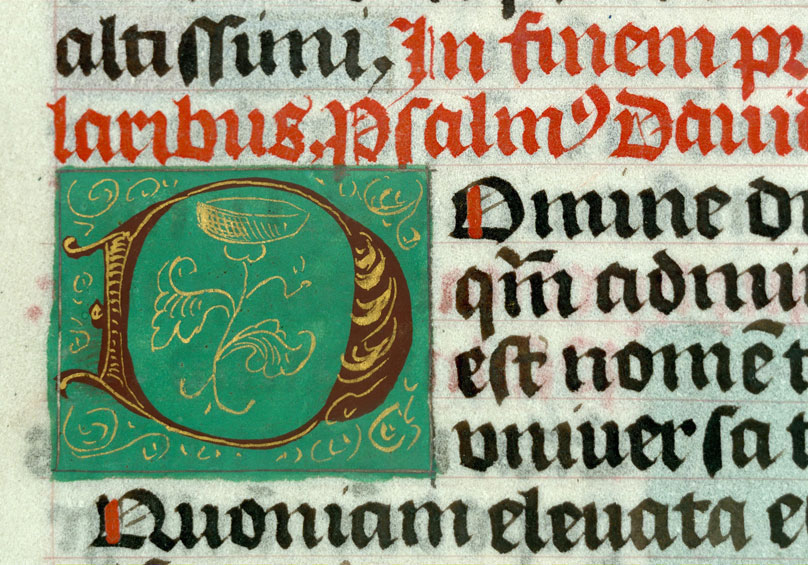 altissimi, In finem pr
laribus, Psalmꝰ Daui
DOmine dn
qm̄ admi
est nomē t
vniuersa t
Quoniam eleuata e